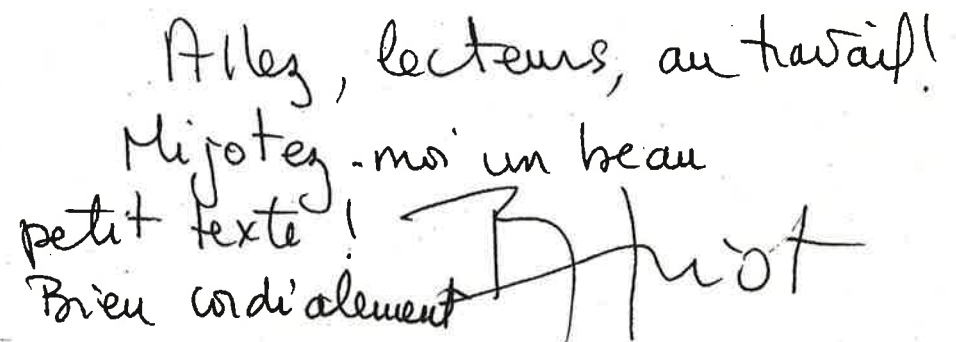 Allez, lecteurs, au travail!
Mijotez-moi un beau
petit texte !
Bien cordialement